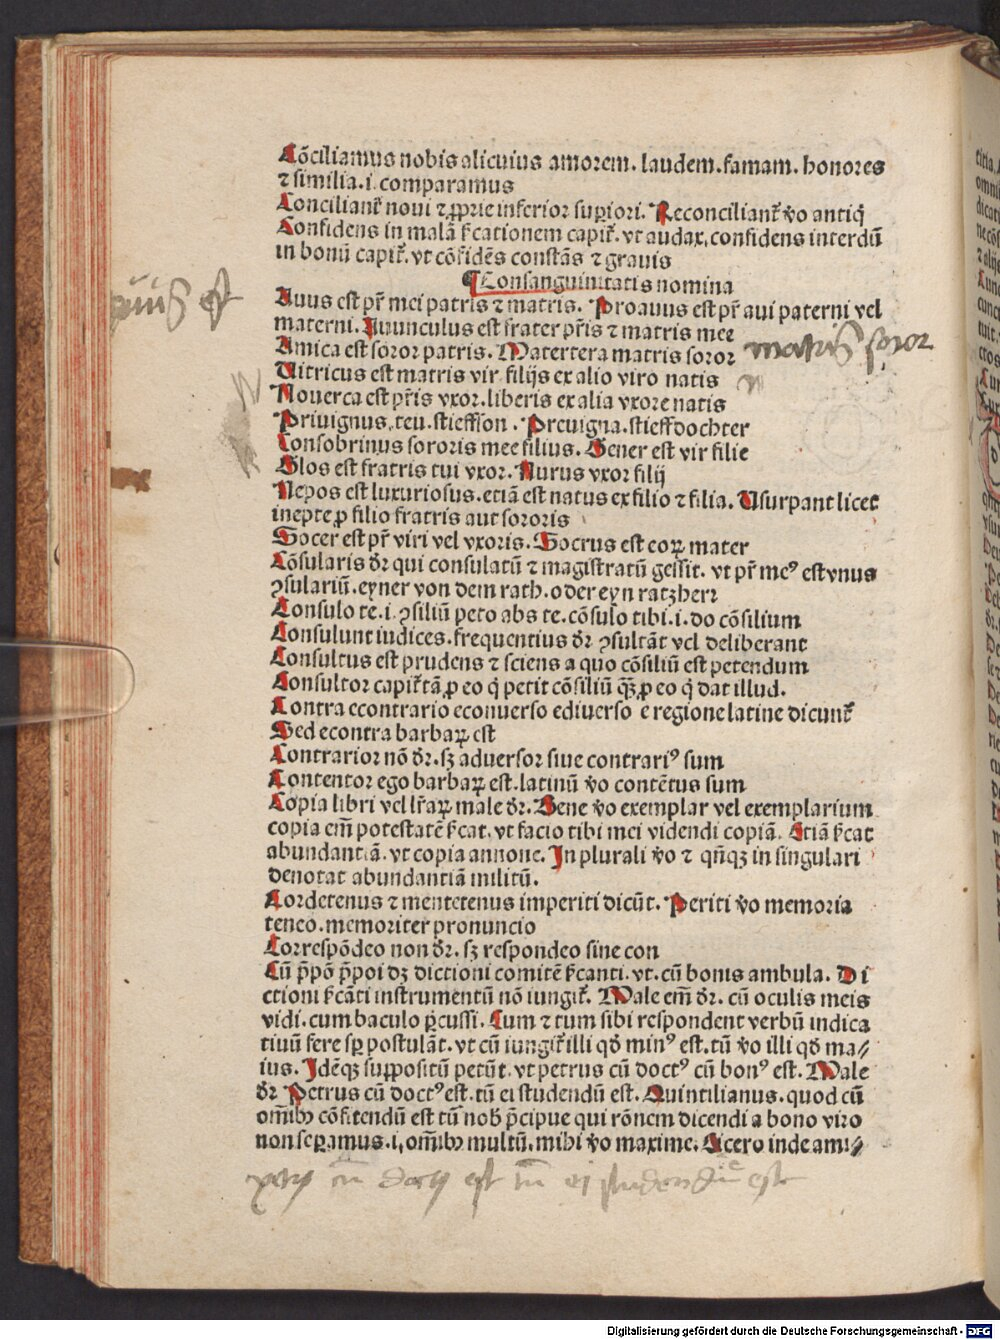 Cōciliamus nobis alicuius amorem. laudem. famam. honores
⁊ similia. i. comparamus
Conciliant᷑ noui ⁊ ꝓprie inferior suꝑiori. Reconciliant᷑ v̊o antiq̇
Confidens in malā sc̄ationem capit᷑. vt audax, confidens interdū
in bonū capit᷑. vt cōfidēs constās ⁊ grauis
¶ Consanguinitatis nomina
Auus est pr̄ mei patris ⁊ matris. Proauus est pr̄ aui paterni vel
materni. Auunculus est frater pr̄is ⁊ matris mee
Amica est soror patris. Matertera matris soror
matris soror
Uitricus est matris vir filijs ex alio viro natis
Nouerca est pr̄is vxor. liberis ex alia vxore natis
Priuignus, teu. stieffson. Preuigna. stieffdochter
Consobrinus sororis mee filius. Gener est vir filie
Glos est fratris tui vxor. Nurus vxor filij
Nepos est luxuriosus. etiā est natus ex filio ⁊ filia. Usurpant licet
inepte ꝓ filio fratris aut sororis
Socer est pr̄ viri vel vxoris. Socrus est eoꝝ mater
Cōsularis dr̄ qui consulatū ⁊ magistratū gessit. vt pr̄ meꝰ est vnus
ꝯsulariū. eyner von dem rath. oder eyn ratzherr
Consulo te. i. ꝯsiliū peto abs te. cōsulo tibi. i. do cōsilium
Consulunt iudices. frequentius dr̄ ꝯsultāt vel deliberant
Consultus est prudens ⁊ sciens a quo cōsiliū est petendum
Consultor capit᷑ tā ꝓ eo q̇ petit cōsiliū q̄ꝫ ꝓ eo q̇ dat illud.
Contra econtrario econuerso ediuerso e regione latine dicunt᷑
Sed econtra barbaꝝ est
Contrarior nō dr̄. sꝫ aduersor siue contrariꝰ sum
Contentor ego barbaꝝ est. latinū v̊o contētus sum
Copia libri vel lr̄aꝝ male dr̄. Bene v̊o exemplar vel exemplarium
copia em̄ potestatē sc̄at. vt facio tibi mei videndi copiā. Etiā sc̄at
abundantiā. vt copia annone. In plurali v̊o ⁊ qn̄qꝫ in singulari
denotat abundantiā militū.
Cordetenus ⁊ mentetenus imperiti dicūt. Periti v̊o memoria
teneo. memoriter pronuncio
Correspōdeo non dr̄. sꝫ respondeo sine con
Cū p̄pō p̄poi dꝫ dictioni comitē sc̄anti. vt. cū bonis ambula. Di
ctioni sc̄āti instrumentū nō iungit᷑. Male em̄ dr̄. cū oculis meis
vidi. cum baculo ꝑcussi. Cum ⁊ tum sibi respondent verbū indica
tiuū fere sꝑ postulāt. vt cū iungit᷑ illi qd̄ minꝰ est. tū v̊o illi qd̄ ma⸗
ius. Idēqꝫ suppositū petūt. vt petrus cū doctꝰ cū bonꝰ est. Male
dr̄ Petrus cū doctꝰ est. tū ei studendū est. Quintilianus. quod cū
om̄ibꝰ cōfitendū est tū nob̄ p̄cipue qui rōnem dicendi a bono viro
non seꝑamus. i, om̄ibꝰ multū. mihi v̊o maxime. Cicero inde ami⸗
petrus cū doctꝰ est tū ei studendū est
Digitalisierung gefördert durch die Deutsche Forschungsgemeinschaft - DFG